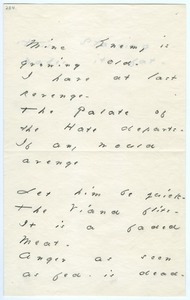 Mine Enemy is
growing old.
I have at last
Revenge-
The Palate of
the Hate departs-
If any would
avenge
Let him be quick-
The Viand flits-
It is a faded
Meat-
Anger as soon
as fed- is dead-